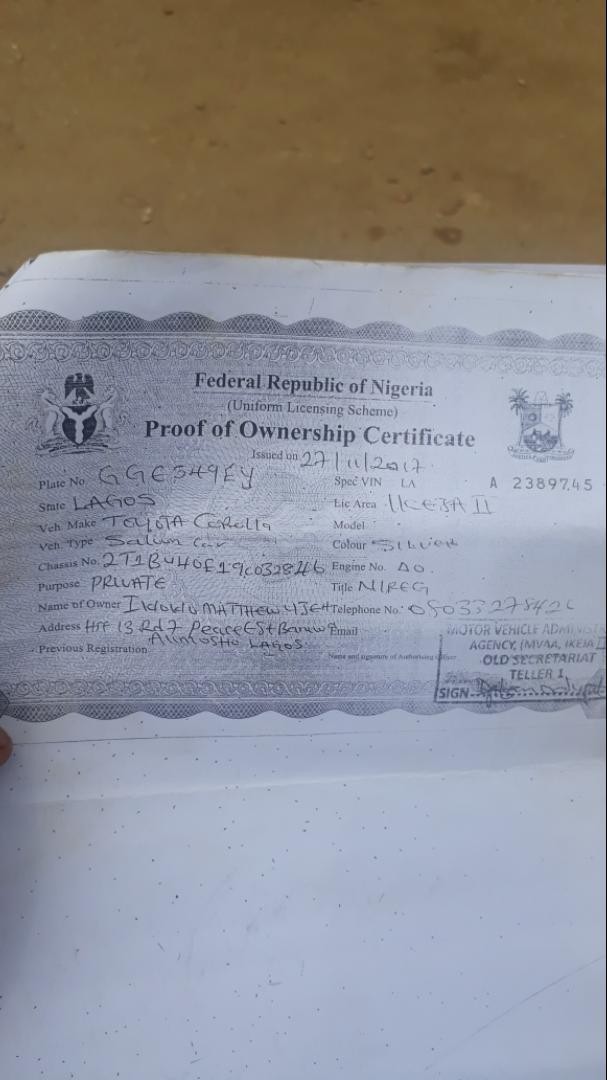 Federal Republic of Nigeria
(Uniform Licensing Scheme)
Proof of Ownership Certificate
Issued on 27/11/2017
Plate No GGE549EY Spec VIN LA A 2389745
State LAGOS Lic Area IKEJA II
Veh Make TOYOTA Corolla Model
Veh. Type Salun Car Colour SILVER
Chassis No. 2T1BU40E19C032846 Engine No. AO.
Purpose PRIVATE Title N/REG
Name of Owner MATTHEW Telephone No:
Address HSE 13 Rd 7 Peace Est Email
LAGOS
Previous Registration Name and signature of Authorising Officer
MOTOR VEHICLE
AGENCY, (MVAA, IKEJA
OLD SECRETARIAT
TELLER 1
SIGN